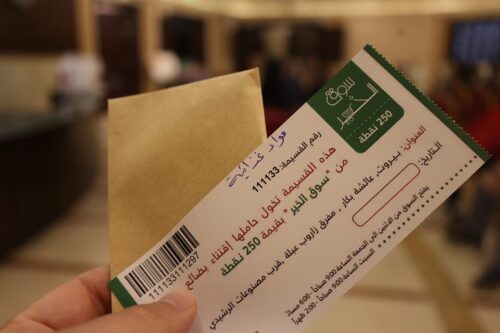 سوق
الخير
250 نقطة
مواد غذائية
رقم القسيمة: 111133
هذه القسيمة تخول حاملها إقتناء بضائع
من "سوق الخير" بقيمة 250 نقطة
العنوان: بيروت, عائشة بكار, مفرق زاروب عبلة, قرب مصنوعات الرشيدي
التاريخ:
يفتح السوق من الاثنين الى الجمعة الساعة 9:00 صباحاً - 6:00 مساءً
السبت الساعة 9:00 صباحاً - 2:00 ظهراً
111133111297